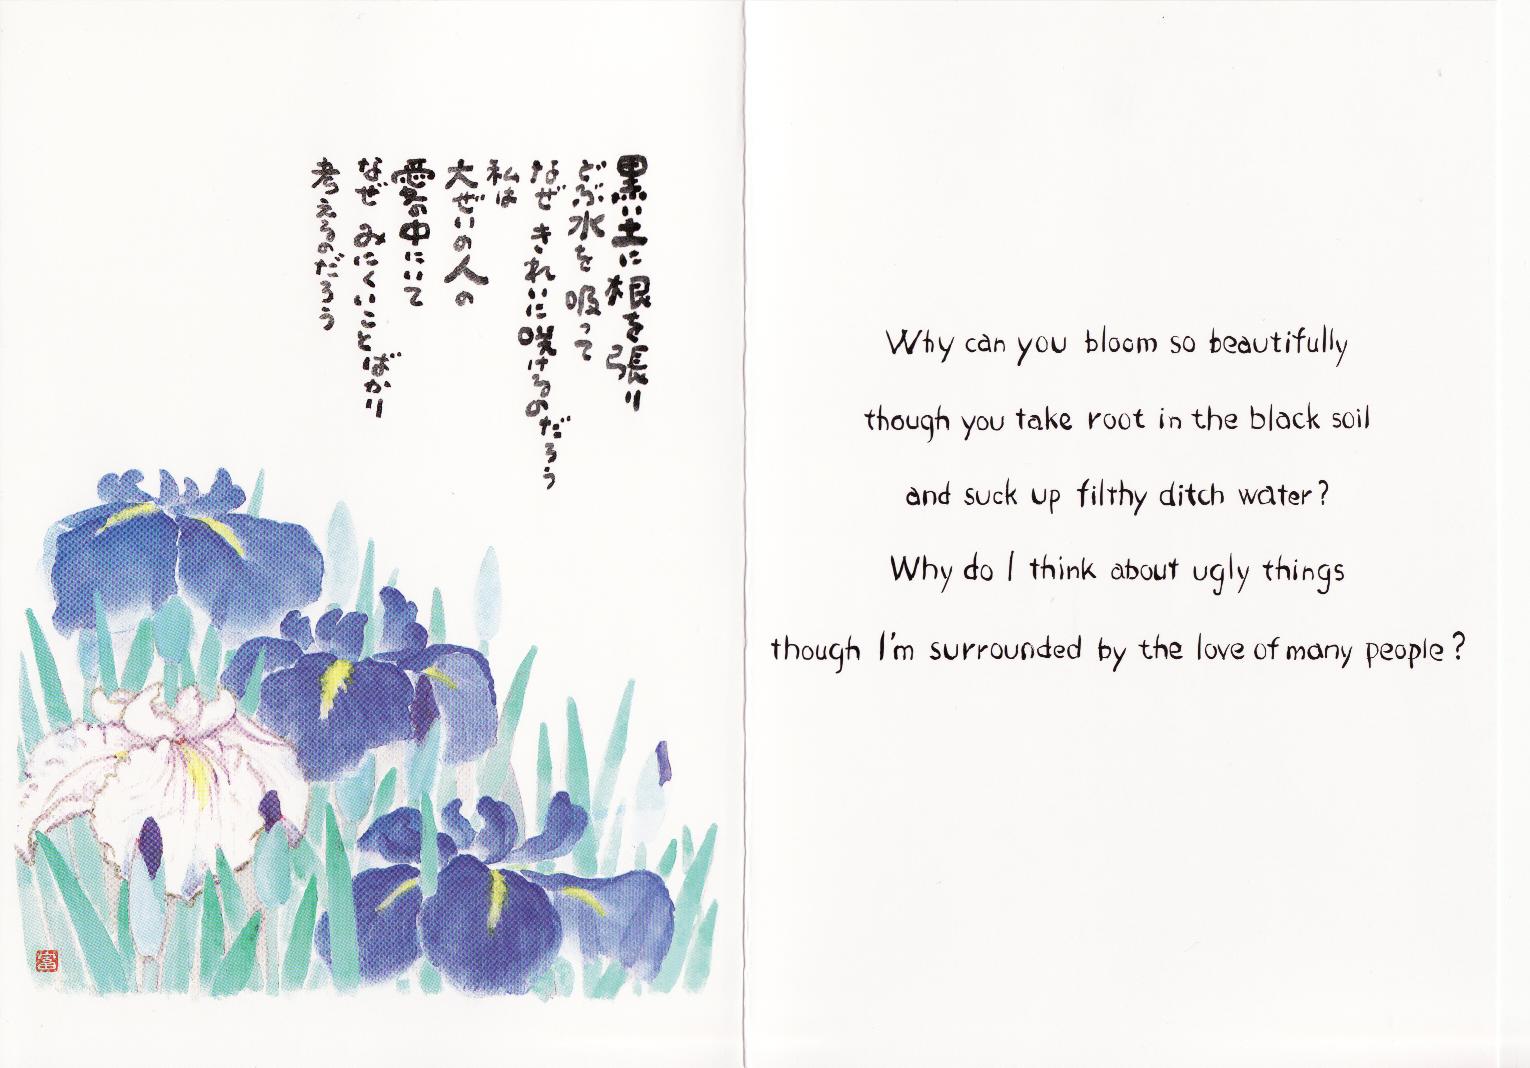 黒い土に根を張り
どぶ水を吸って
なぜきれいに咲けるのだろう
私は
大ぜいの人の
愛の中にいて
なぜみにくいことばかり
考えるのだろう
Why can you bloom so beautifully
though you take root in the black soil
and suck up filthy ditch water?
Why do I think about ugly things
though I'm surrounded by the love of many people?
富